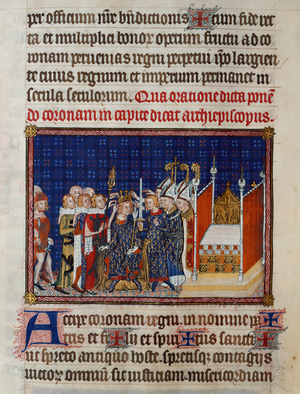 per officium nr̄e bn̄dictionis ✠ cum fide rec
ta et multiplici bonor operum fructu ad co
ronam pervenias regni perpetui ip̄o largien
te cuius regnum et imperium permanet in
secula seculorum. Qua oratione dicta ponen
do coronam in capite dicat archiepiscopus.
Accipe coronam regni. in nomine pa✠
tris et fi✠lij et spiri✠tus sancti
ut spreto antiquo hoste. spretisq; contagijs
vicior omnium. sic iusticiam. misericordiam